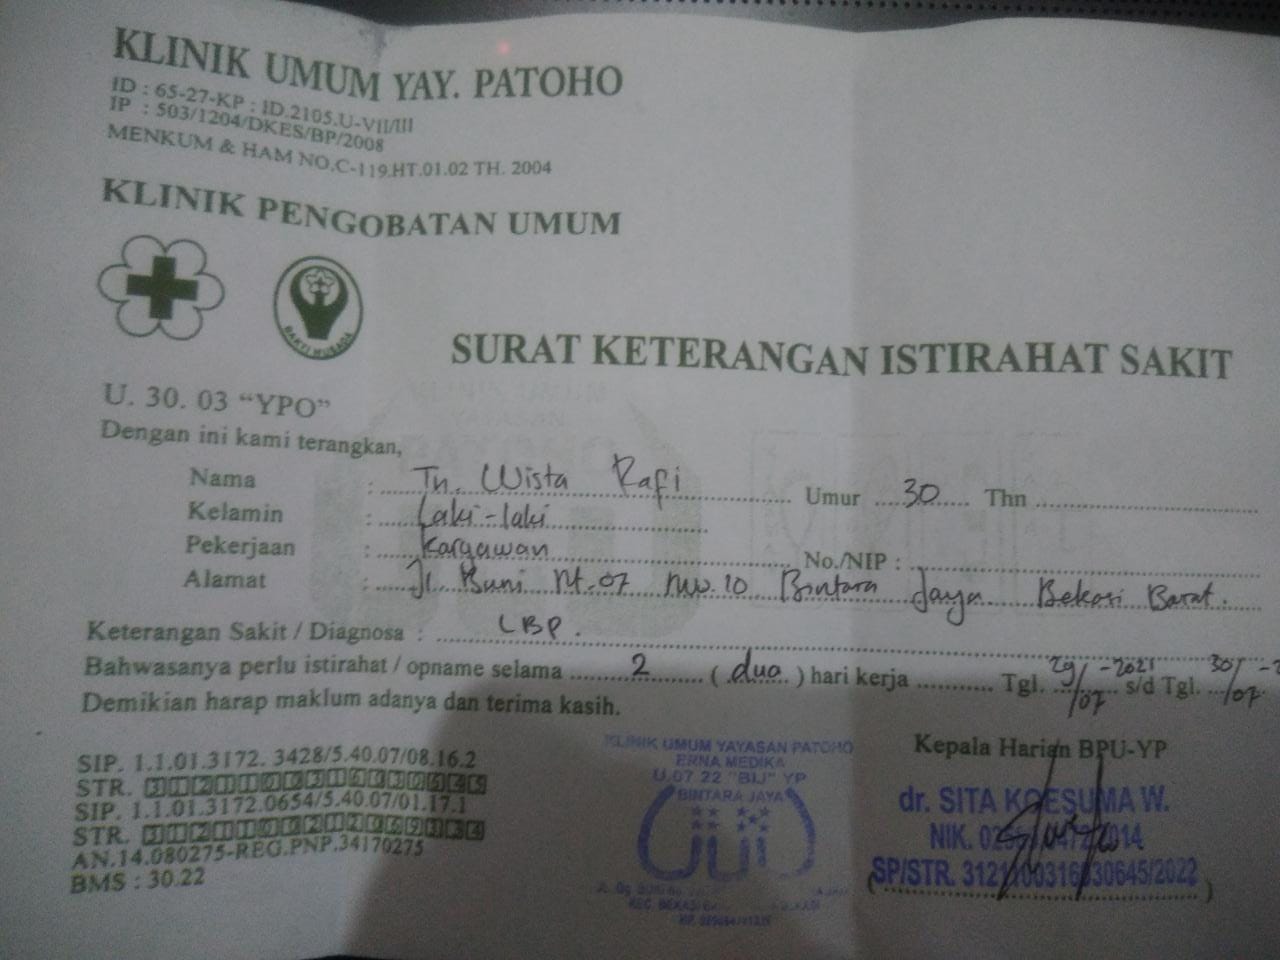 KLINIK UMUM YAY. PATOHO
ID : 65-27-KP : ID.2105.U-VII/III
IP : 503/1204/DKES/BP/2008
MENKUM & HAM NO.C-119.HT.01.02 TH. 2004
KLINIK PENGOBATAN UMUM
BAKTI HUSADA
SURAT KETERANGAN ISTIRAHAT SAKIT
U. 30. 03 “YPO”
Dengan ini kami terangkan,
Nama : Tn. Wista Rafi Umur 30 Thn
Kelamin : Laki-laki
Pekerjaan : Karyawan No./NIP :
Alamat : Jl. Buni Rt.07 Rw.10 Bintara Jaya Bekasi Barat.
Keterangan Sakit / Diagnosa : LBP.
Bahwasanya perlu istirahat / opname selama 2 ( dua ) hari kerja Tgl. 29/07-2021 s/d Tgl. 30/07-2
Demikian harap maklum adanya dan terima kasih.
SIP. 1.1.01.3172. 3428/5.40.07/08.16.2
STR.
SIP. 1.1.01.3172.0654/5.40.07/01.17.1
STR.
AN.14.080275-REG.PNP.34170275
BMS : 30.22
KLINIK UMUM YAYASAN PATOHO
ERNA MEDIKA
U.07 22 "BIJ" YP
BINTARA JAYA
Kepala Harian BPU-YP
dr. SITA KOESUMA W.
NIK.
SP/STR. 3121100316030645/2022